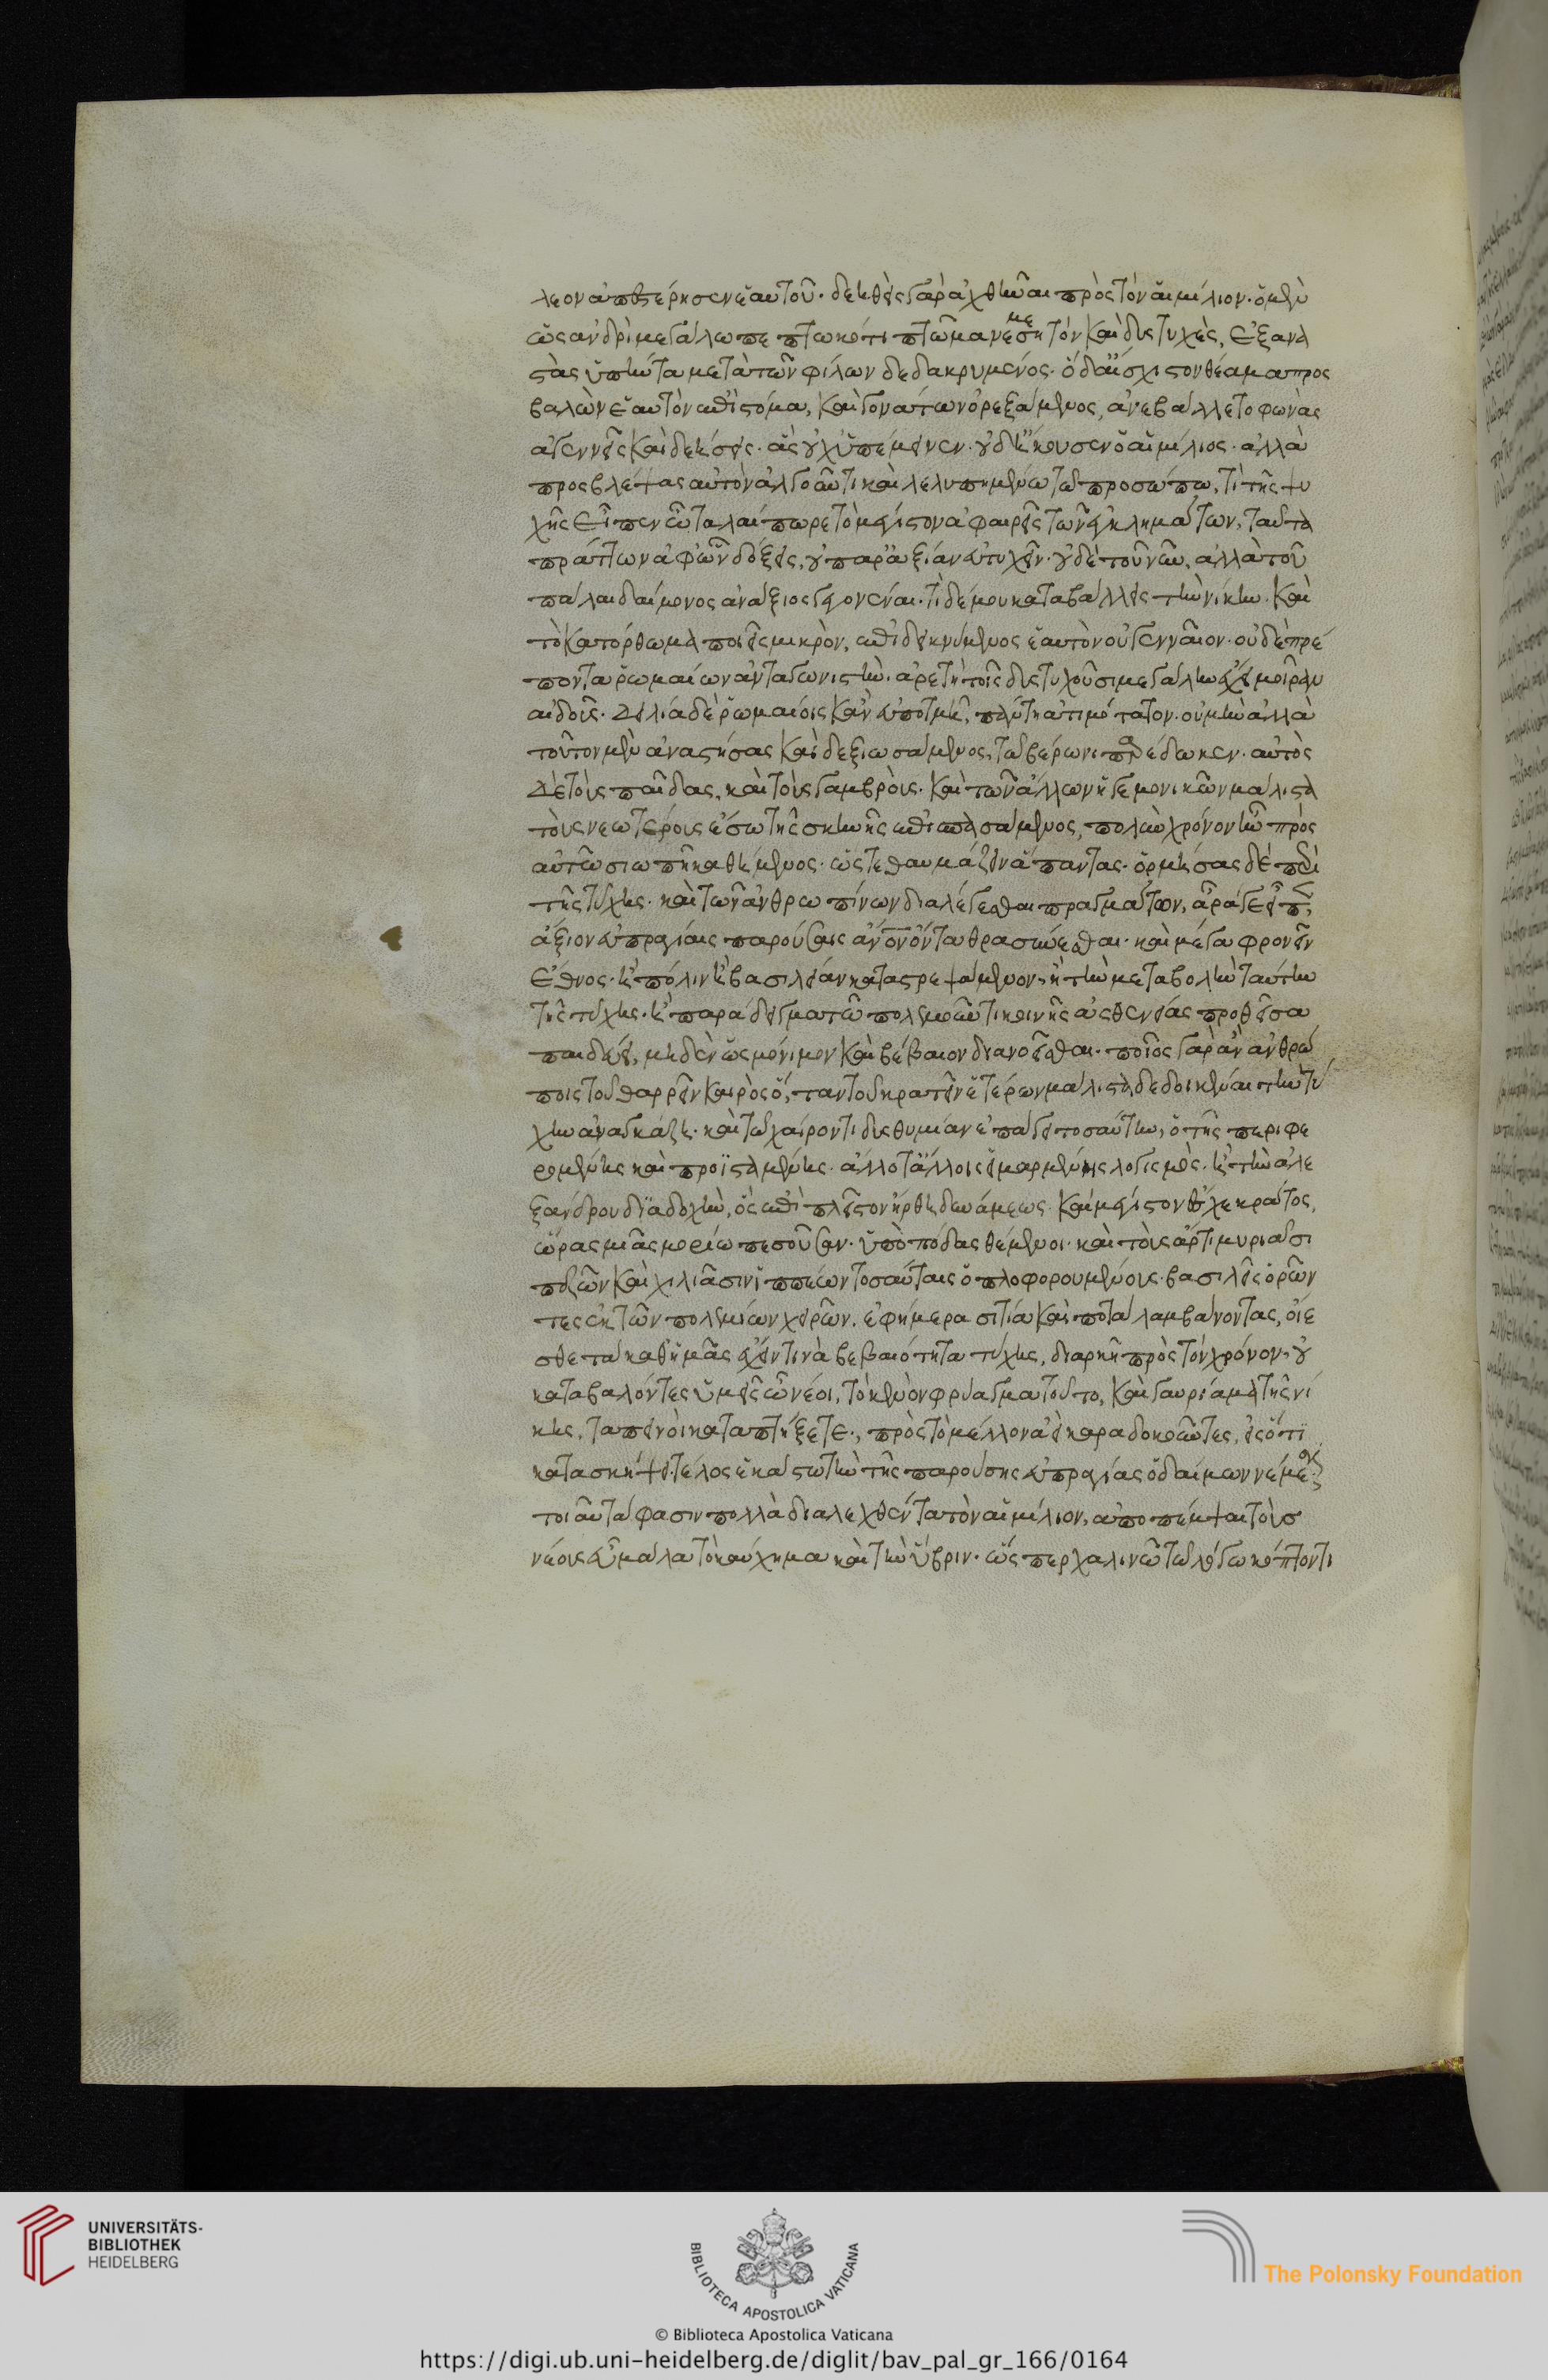 λεον ἀπεστέρησεν ἑαυτοῦ. δεηθεὶς γὰρ ἀχθῆναι πρὸς τὸν αἰμίλιον. ὁ μὲν
ὡς ἀνδρὶ μεγάλω πεπτωκότι πτῶμα νεμεσητὸν καὶ δυςτυχὲς, ἐξανα
στὰς ὑπήντα μετὰ τῶν φίλων δεδακρυμένος. ὁ δ' αἴσχιστον θέαμα προς
βαλὼν ἑαυτὸν ἐπὶ στόμα, καὶ γονάτων ὀρεξάμενος, ἀνεβάλλετο φωνὰς
ἀγεννεῖς καὶ δεήσεις. ἃς οὐχ ὑπέμεινεν. οὐδ' ἤκουσεν ὁ αἰμίλιος. ἀλλὰ
προςβλέψας αὐτὸν ἀλγοῦντι καὶ λελυπημένω τῶ προσώπω, τί τῆς τύ
χης εἶπεν ὦ ταλαίπωρε τὸ μέγιστον ἀφαιρεῖς τῶν ἐγκλημάτων, ταῦτα
πράττων ἀφ' ὧν δόξεις, οὐ παρ' ἀξίαν ἀτυχεῖν. οὐδὲ τοῦ νῦν, ἀλλὰ τοῦ
πάλαι δαίμονος ἀνάξιος γεγονέναι. τί δέ μου καταβάλλεις τὴν νίκην. καὶ
τὸ κατόρθωμα ποιεῖς μικρὸν, ἐπιδεικνύμενος ἑαυτὸν οὐ γενναῖον. οὐδὲ πρέ
ποντα ῥωμαίων ἀνταγωνιστήν. ἀρετή τοῖς δυςτυχοῦσι μεγάλην ἔχει μοῖραν
αἰδοῖς. δειλία δὲ ῥωμαίοις κἂν εὐποτμῆ, πάντη ἀτιμότατον. οὐ μὴν ἀλλὰ
τοῦτον μὲν ἀναστήσας καὶ δεξιωσάμενος, τῶ βέρωνι παρέδωκεν. αὐτὸς
δὲ τοὺς παῖδας, καὶ τοὺς γαμβροὺς. καὶ τῶν ἄλλων ἡγεμονικῶν μάλιστα
τοὺς νεωτέρους εἴσω τῆς σκηνῆς ἐπισπασάμενος, πολὺν χρόνον ἦν πρὸς
αὑτῶ σιωπῆ καθήμενος. ὥςτε θαυμάζειν ἅπαντας. ὁρμήσας δὲ περὶ
τῆς τύχης. καὶ τῶν ἀνθρωπίνων διαλέγεσθαι πραγμάτων, ἆρά γε εἶπεν,
ἄξιον εὐπραγίας παρούσης ἄνον ὄντα θρασύνεσθαι. καὶ μέγα φρονεῖν
ἔθνος. ἢ πόλιν ἢ βασιλείαν καταστρεψάμενον, ἢ τὴν μεταβολὴν ταύτην
τῆς τύχης. ἢ παράδειγμα τῶ πολεμοῦντι κοινῆς ἀσθενείας προθεῖσα
παιδεύει, μηδὲν ὡς μόνιμον καὶ βέβαιον διανοεῖσθαι. ποῖος γὰρ ἂν ἀνθρώ
ποις τοῦ θαρρεῖν καιρὸς ὅταν τὸ κρατεῖν ἑτέρων μάλιστα δεδοικέναι τὴν τύ
χην ἀναγκάζη. καὶ τῶ χαίροντι δυςθυμίαν ἐπάγει τοσαύτην, ὁ τῆς περιφε
ρομένης καὶ προϊσταμένης. ἄλλοτ' ἄλλοις εἱμαρμένης λογισμός. ἢ τὴν ἀλε
ξάνδρου διαδοχὴν, ὃς ἐπὶ πλεῖστον ἤρθη δυνάμεως. καὶ μέγιστον ἔσχε κράτος,
ὥρας μιᾶς μορίω πεσοῦσαν. ὑπὸ πόδας θέμενοι. καὶ τοὺς ἄρτι μυριάσι
πεζῶν καὶ χιλιᾶσιν ἱππέων τοσαύταις ὁπλοφορουμένους. βασιλεῖς ὁρῶν
τες ἐκ τῶν πολεμίων χειρῶν. ἐφήμερα σιτία καὶ ποτὰ λαμβάνοντας, οἴε
σθε τὰ καθ' ἡμᾶς ἔχειν τινὰ βεβαιότητα τύχης, διαρκῆ πρὸς τὸν χρόνον, οὐ
καταβαλόντες ὑμεῖς ὦ νέοι, τὸ κενὸν φρύαγμα τοῦτο, καὶ γαυρίαμα τῆς νί
κης, ταπεινοὶ καταπτήξετε, πρὸς τὸ μέλλον ἀεὶ καραδοκοῦντες, εἰς ὅ τι
κατασκήψει τέλος ἑκάστω τὴν τῆς παρούσης εὐπραγίας ὁ δαίμων νέμεσιν.
τοιαῦτά φασιν πολλὰ διαλεχθέντα τὸν αἰμίλιον, ἀποπέμψαι τοὺς
νέους εὖ μάλα τὸ καύχημα καὶ τὴν ὕβριν. ὥςπερ χαλινῶ τῶ λόγω κόπτοντι
UNIVERSITÄTS-
BIBLIOTHEK
HEIDELBERG
BIBLIOTECA APOSTOLICA VATICANA
The Polonsky Foundation
© Biblioteca Apostolica Vaticana
https://digi.ub.uni-heidelberg.de/diglit/bav_pal_gr_166/0164